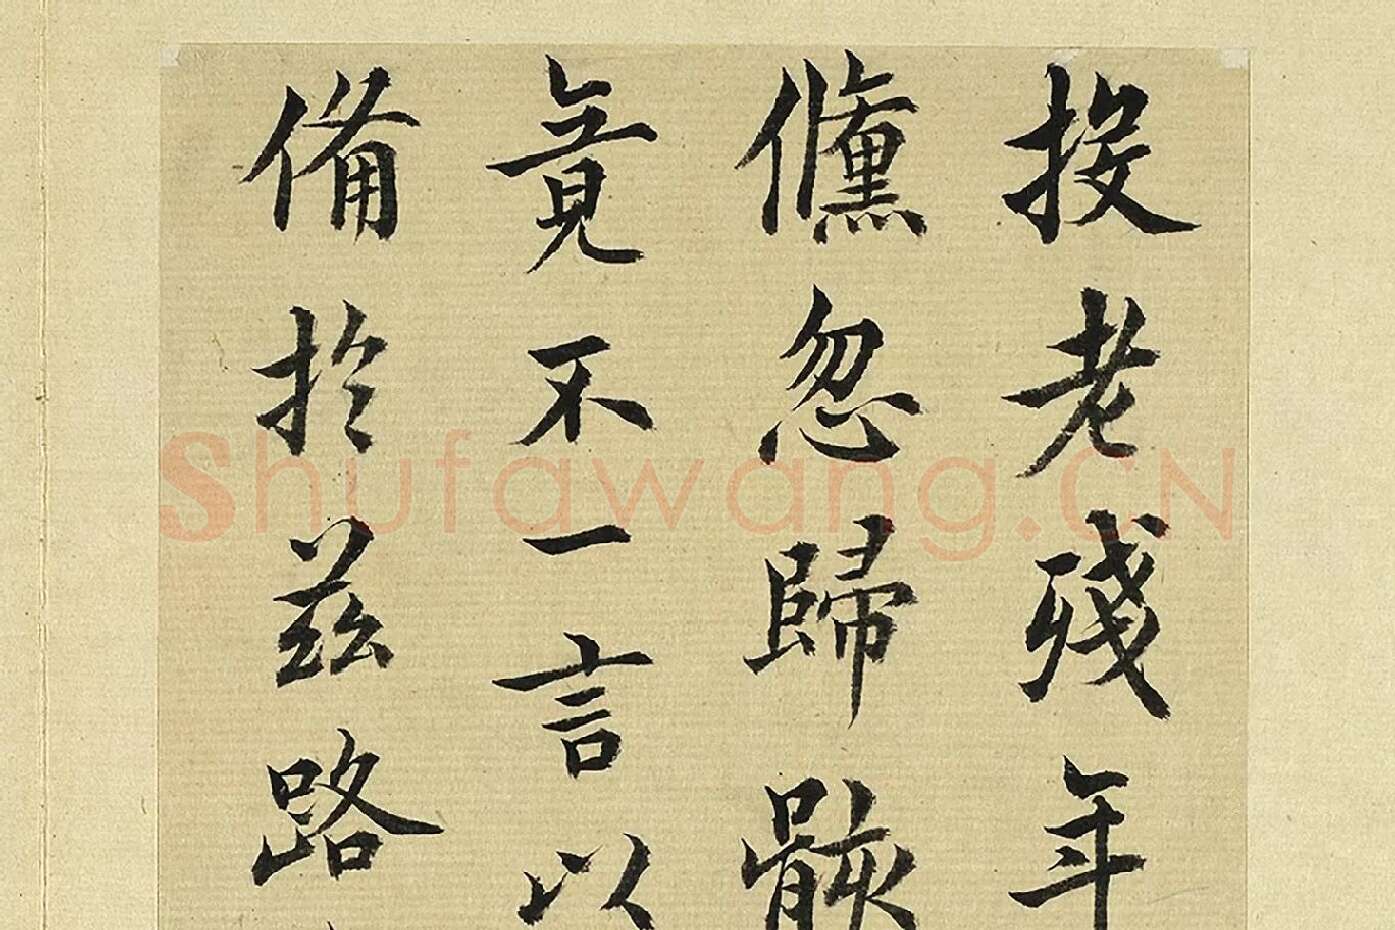 投老殘年
儻忽歸骸
竟不一言以
備於茲路
Shufawang.CN